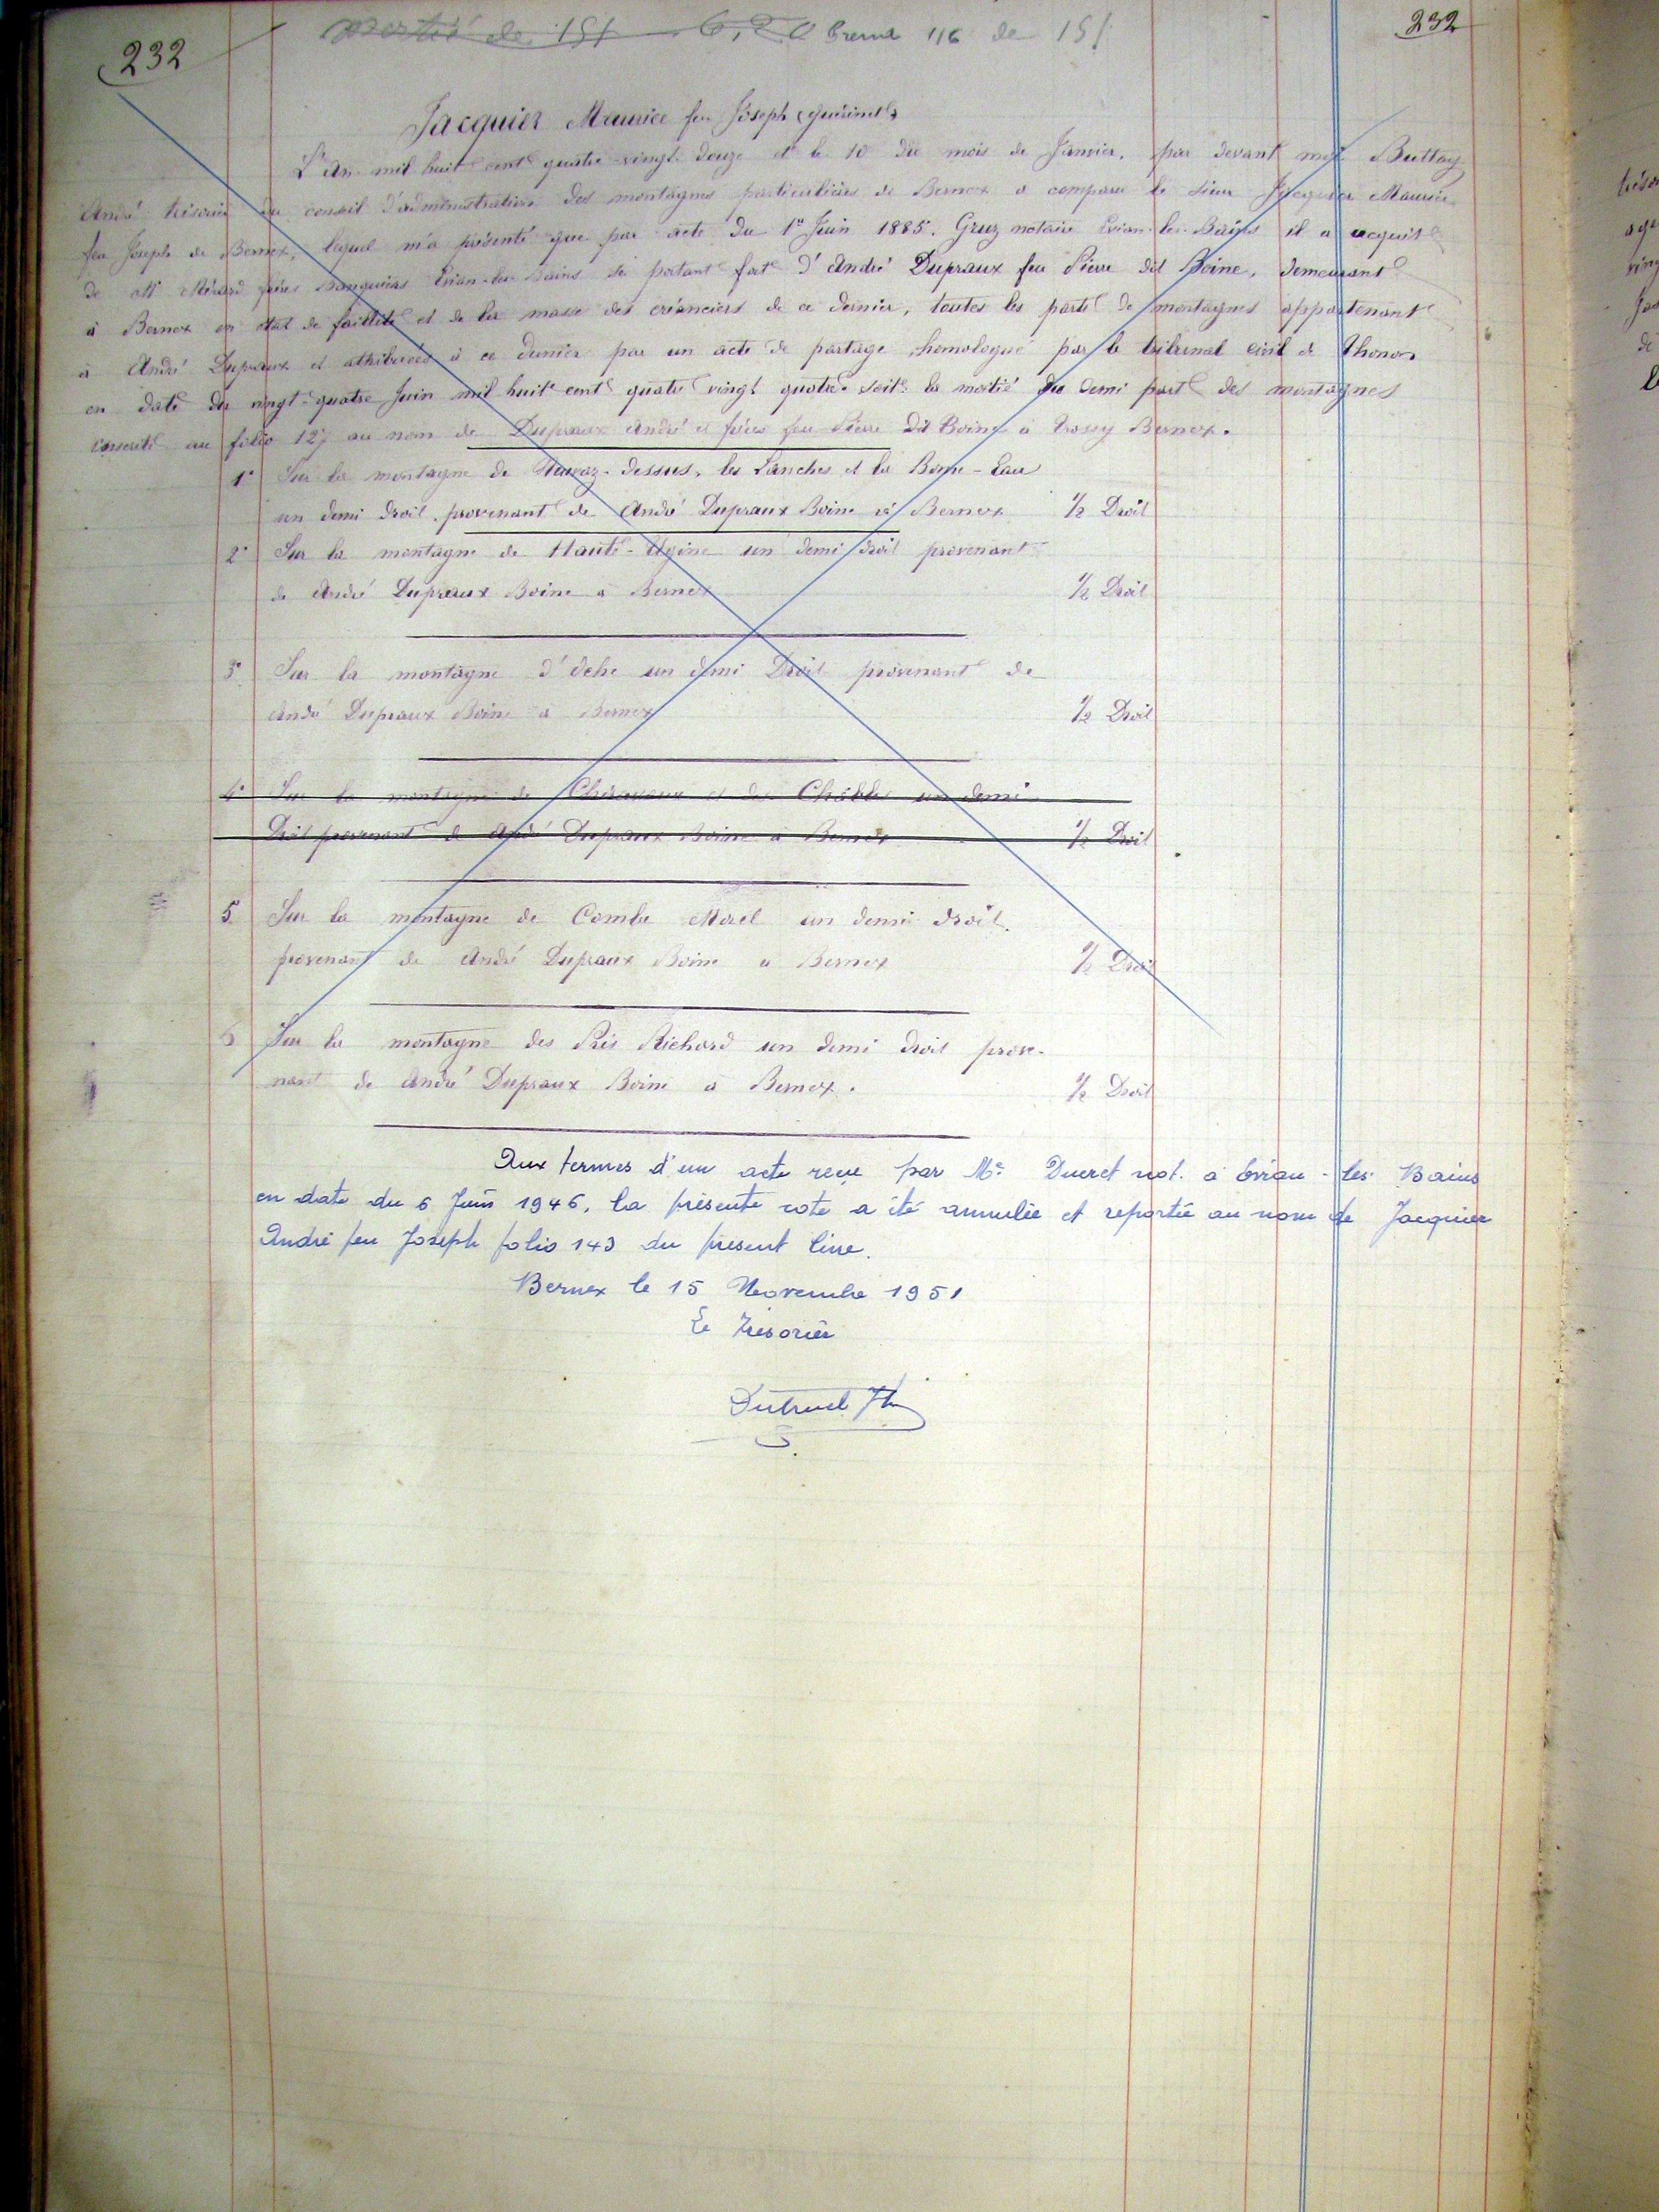 232
232
moitié de 151 6,20 Prend 1/6 de 151
Jacquier Maurice feu Joseph
L'An mil huit cent quatre-vingt douze et le 10 du mois de Janvier, par devant moi Buttay
André trésorier du conseil d'administration des montagnes particulières de Bernex a comparu le sieur Jacquier Maurice
feu Joseph de Bernex, lequel m'a présenté que par acte du 1er Juin 1885. Gruz notaire Evian-les-Bains il a acquit
de M frères Banquiers Evian-les-Bains se portant fort d'André Dupraux feu Pierre dit Boine, demeurant
à Bernex en état de faillite et de la masse des créanciers de ce dernier, toutes les parts de montagnes appartenant
à André Dupraux et attribuées à ce dernier par un acte de partage homologué par le tribunal civil de Thonon
en date du vingt-quatre Juin mil huit cent quatre vingt quatre soit la moitié du demi part des montagnes
inscrite au folio 127 au nom de Dupraux André et frères feu Pierre dit Boine à Trossy Bernex.
1° Sur la montagne de dessus, les Lanches et la Borne-Eau
un demi droit provenant de André Dupraux Boine à Bernex 1/2 Droit
2° Sur la montagne de Haute-Ugine un demi droit provenant
de André Dupraux Boine à Bernex 1/2 Droit
3° Sur la montagne d'Oche un demi Droit provenant de
André Dupraux Boine à Bernex 1/2 Droit
4° Sur la montagne de et des Châbles un demi
Droit provenant de André Dupraux Boine à Bernex 1/2 Droit
5 Sur la montagne de Combe Morel un demi droit.
provenant de André Dupraux Boine à Bernex 1/2 Droit
6 Sur la montagne des Prés Richard un demi droit prove-
nant de André Dupraux Boine à Bernex. 1/2 Droit
Aux termes d'un acte reçu par Me Ducret not. à Evian-les-Bains
en date du 6 Juin 1946, la présente cote a été annulée et reportée au nom de Jacquier
André feu Joseph folio 143 du présent livre.
Bernex le 15 Novembre 1951
Le Trésorier
Dutruel